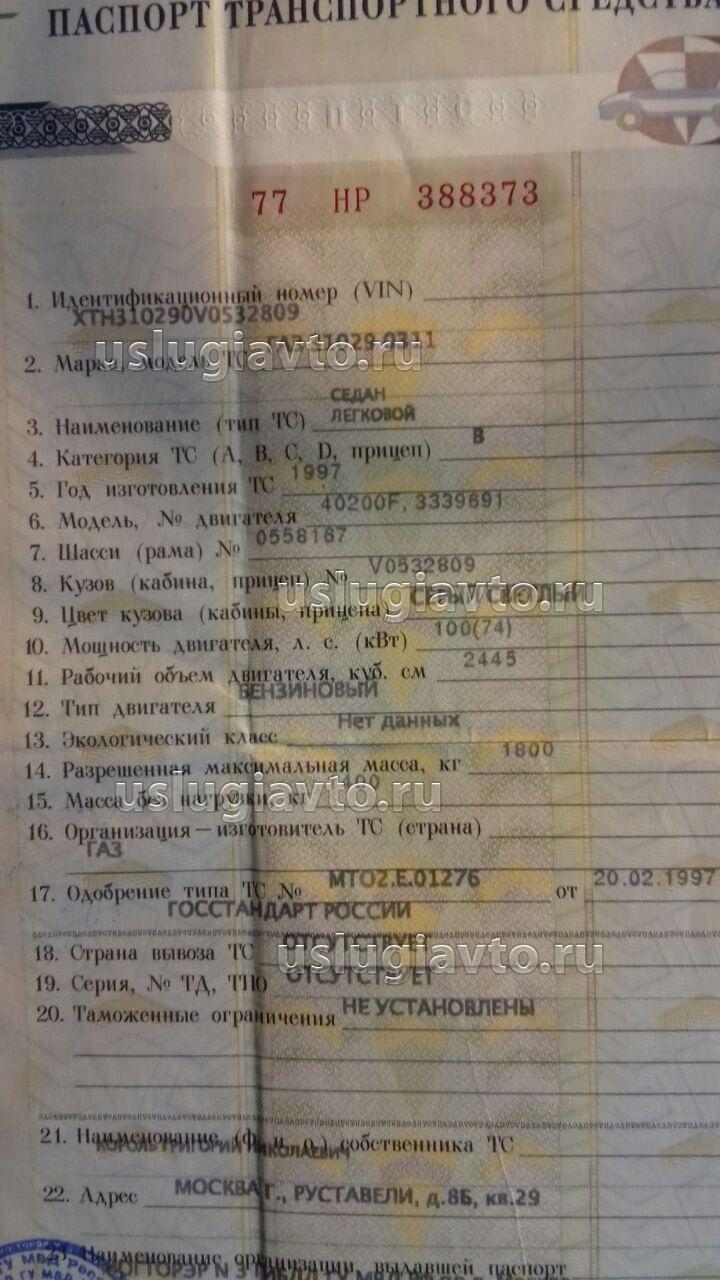 ПАСПОРТ ТРАНСПОРТНОГО СРЕДСТВА
ПТС
77 НР 388373
1. Идентификационный номер (VIN)
XTH310290V0532809
ГАЗ-31029-0311
2. Марка, модель ТС
uslugiavto.ru
СЕДАН
3. Наименование (тип ТС) ЛЕГКОВОЙ
4. Категория ТС (А, В, С, D, прицеп) В
5. Год изготовления ТС 1997
6. Модель, № двигателя 40200F, 3339691
7. Шасси (рама) № 0558167
8. Кузов (кабина, прицеп) № V0532809
uslugiavto.ru
9. Цвет кузова (кабины, прицепа) СЕРЫЙ СВЕТЛЫЙ
10. Мощность двигателя, л. с. (кВт) 100(74)
11. Рабочий объем двигателя, куб. см 2445
12. Тип двигателя БЕНЗИНОВЫЙ
13. Экологический класс Нет данных
14. Разрешенная максимальная масса, кг 1800
15. Масса без нагрузки, кг
uslugiavto.ru
16. Организация — изготовитель ТС (страна)
ГАЗ
17. Одобрение типа ТС № МТ02.Е.01276 от 20.02.1997
ГОССТАНДАРТ РОССИИ
18. Страна вывоза ТС ОТСУТСТВУЕТ
uslugiavto.ru
19. Серия, № ТД, ТПО ОТСУТСТВУЕТ
20. Таможенные ограничения НЕ УСТАНОВЛЕНЫ
21. Наименование (ф. и. о.) собственника ТС
КОРОЛЬ ГРИГОРИЙ НИКОЛАЕВИЧ
22. Адрес МОСКВА Г., РУСТАВЕЛИ, д.8Б, кв.29
23. Наименование организации, выдавшей паспорт